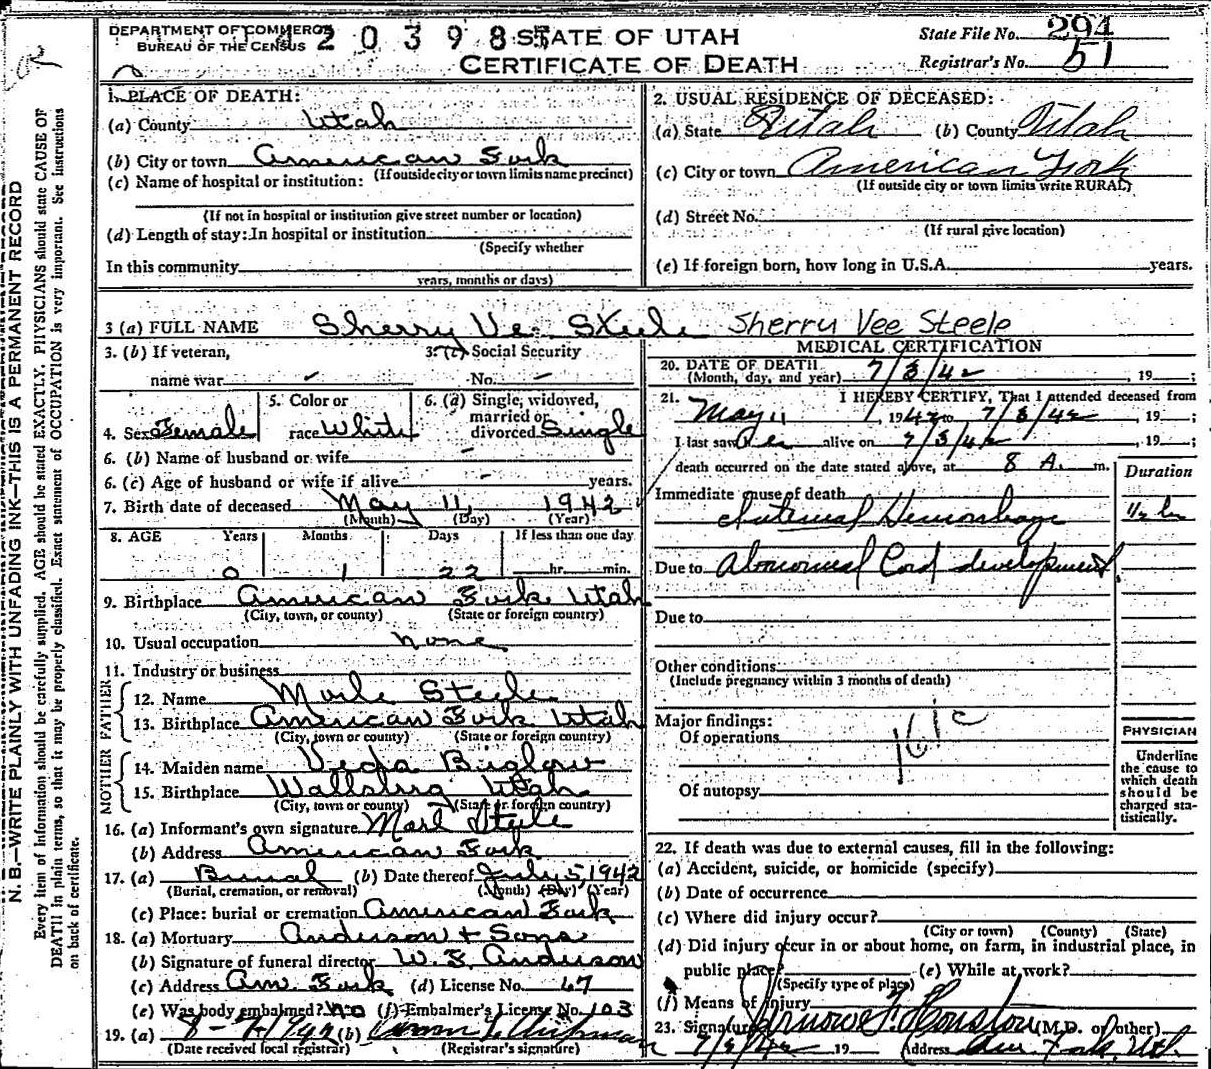 DEPARTMENT OF COMMERCE
BUREAU OF THE CENSUS
2 0 3 9 8 5
STATE OF UTAH
CERTIFICATE OF DEATH
State File No. 294
Registrar's No. 51
N. B.—WRITE PLAINLY WITH UNFADING INK—THIS IS A PERMANENT RECORD
Every item of information should be carefully supplied. AGE should be stated EXACTLY. PHYSICIANS should state CAUSE OF
DEATH in plain terms, so that it may be properly classified. Exact statement of OCCUPATION is very important. See instructions
on back of certificate.
1. PLACE OF DEATH:
(a) County Utah
(b) City or town American Fork
(If outside city or town limits name precinct)
(c) Name of hospital or institution:
(If not in hospital or institution give street number or location)
(d) Length of stay: In hospital or institution
(Specify whether
In this community
years, months or days)
2. USUAL RESIDENCE OF DECEASED:
(a) State Utah (b) County Utah
(c) City or town American Fork
(If outside city or town limits write RURAL)
(d) Street No.
(If rural give location)
(e) If foreign born, how long in U.S.A. years.
3 (a) FULL NAME Sherry Ve Steele Sherry Vee Steele
3. (b) If veteran,
name war
3. (c) Social Security
No. –
4. Sex Female
5. Color or
race White
6. (a) Single, widowed,
married or
divorced Single
6. (b) Name of husband or wife –
6. (c) Age of husband or wife if alive - years.
7. Birth date of deceased May 11, 1942
(Month) (Day) (Year)
8. AGE Years Months Days If less than one day
0 1 22 hr. min.
9. Birthplace American Fork Utah
(City, town, or county) (State or foreign country)
10. Usual occupation none
11. Industry or business
FATHER
12. Name Merle Steele
13. Birthplace American Fork Utah
(City, town or county) (State or foreign country)
MOTHER
14. Maiden name Veda Biglow
15. Birthplace Wallsburg Utah
(City, town or county) (State or foreign country)
16. (a) Informant's own signature Merl Steele
(b) Address American Fork
17. (a) Burial (b) Date thereof July 5, 1942
(Burial, cremation, or removal) (Month) (Day) (Year)
(c) Place: burial or cremation American Fork
18. (a) Mortuary Anderson + Sons
(b) Signature of funeral director W. E. Anderson
(c) Address Am. Fork (d) License No. 67
(e) Was body embalmed? No (f) Embalmer's License No. 103
19. (a) (b)
(Date received local registrar) (Registrar's signature)
MEDICAL CERTIFICATION
20. DATE OF DEATH
(Month, day, and year) 7/3/42, 19 ;
21. I HEREBY CERTIFY, That I attended deceased from
May 11, 1942 to 7/3/42, 19 ;
I last saw her alive on 7/3/42, 19 ;
death occurred on the date stated above, at 8 A. m.
Duration
Immediate cause of death
Internal Hemorrhage 1/2 hr
Due to Abnormal Cord development.
Due to
Other conditions
(Include pregnancy within 3 months of death)
Major findings:
Of operations
161c
Of autopsy
PHYSICIAN
Underline
the cause to
which death
should be
charged sta-
tistically.
22. If death was due to external causes, fill in the following:
(a) Accident, suicide, or homicide (specify)
(b) Date of occurrence
(c) Where did injury occur?
(City or town) (County) (State)
(d) Did injury occur in or about home, on farm, in industrial place, in
public place? (e) While at work?
(Specify type of place)
(f) Means of injury
23. Signature Houston (M.D. or other)
7/5/42 19 Address Am. Fork, Ut.